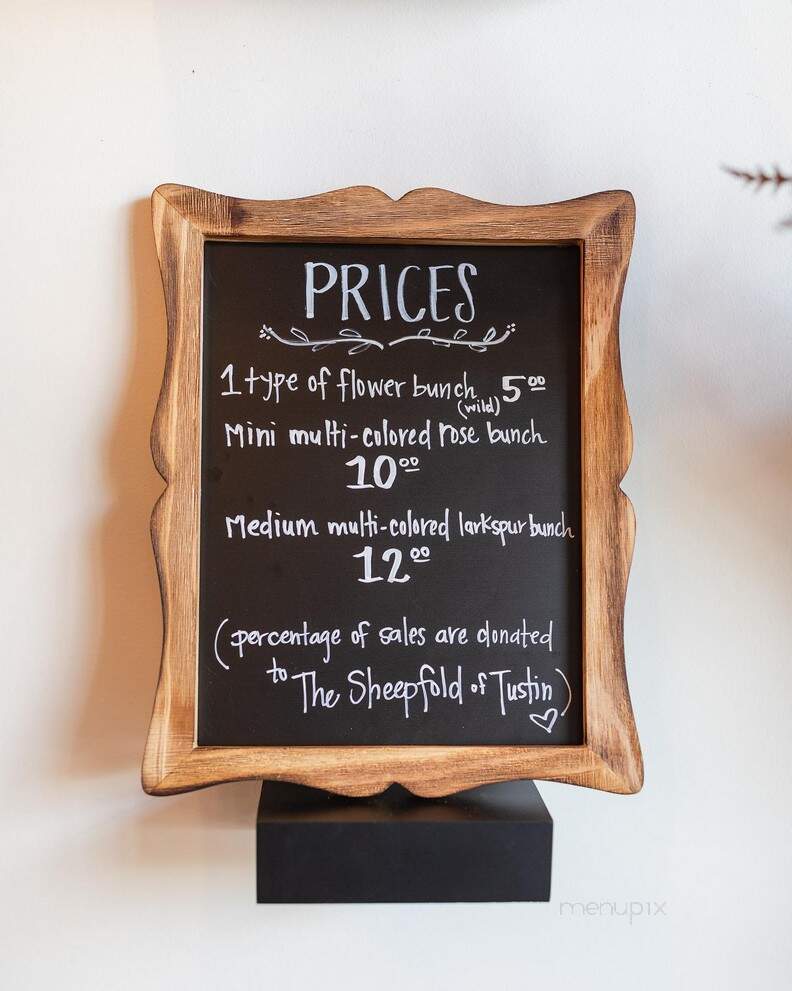 PRICES
1 type of flower bunch 5.00
(wild)
Mini multi-colored rose bunch
10.00
Medium multi-colored larkspur bunch
12.00
(percentage of sales are donated
to The Sheepfold of Tustin)
menupix